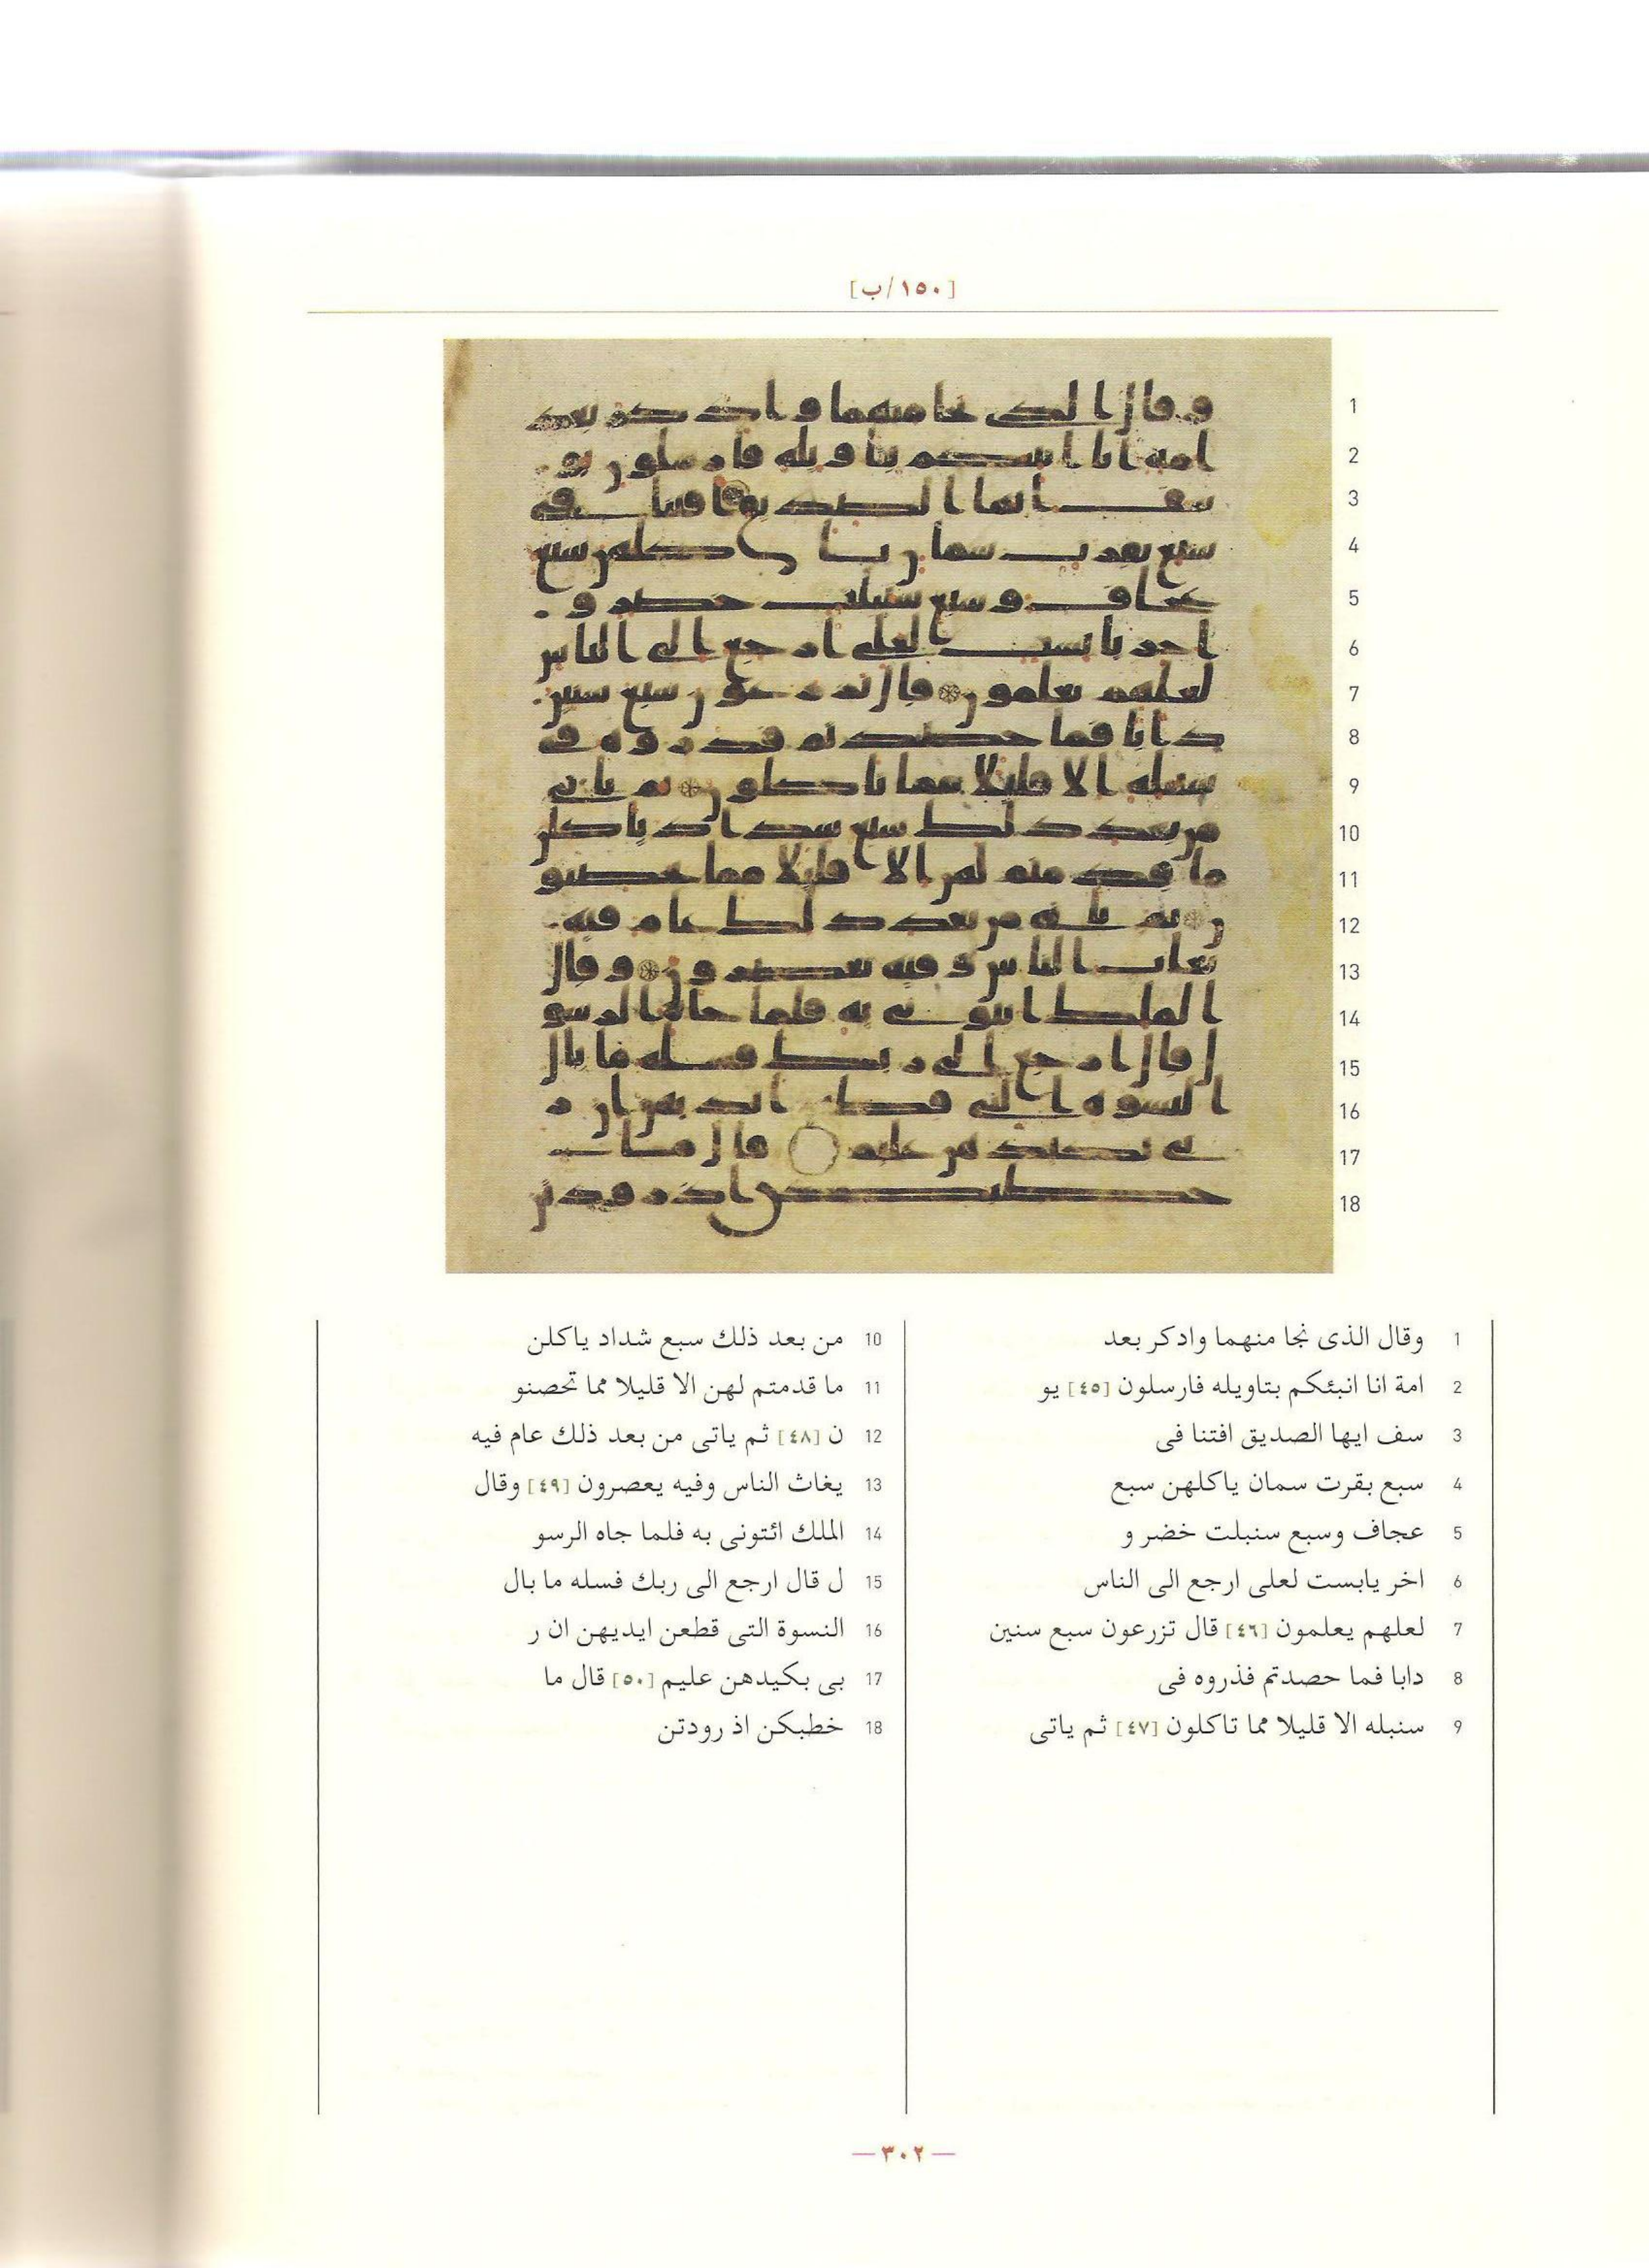 [١٥٠/ب]
1 وقال الذى نجا منهما وادكر بعد
2 امة انا انبئكم بتاويله فارسلون [٤٥] يو
3 سف ايها الصديق افتنا فى
4 سبع بقرت سمان ياكلهن سبع
5 عجاف وسبع سنبلت خضر و
6 اخر يابست لعلى ارجع الى الناس
7 لعلهم يعلمون [٤٦] قال تزرعون سبع سنين
8 دابا فما حصدتم فذروه فى
9 سنبله الا قليلا مما تاكلون [٤٧] ثم ياتى
10 من بعد ذلك سبع شداد ياكلن
11 ما قدمتم لهن الا قليلا مما تحصنو
12 ن [٤٨] ثم ياتى من بعد ذلك عام فيه
13 يغاث الناس وفيه يعصرون [٤٩] وقال
14 الملك ائتونى به فلما جاه الرسو
15 ل قال ارجع الى ربك فسله ما بال
16 النسوة التى قطعن ايديهن ان ر
17 بى بكيدهن عليم [٥٠] قال ما
18 خطبكن اذ رودتن
— ٣٠٢ —